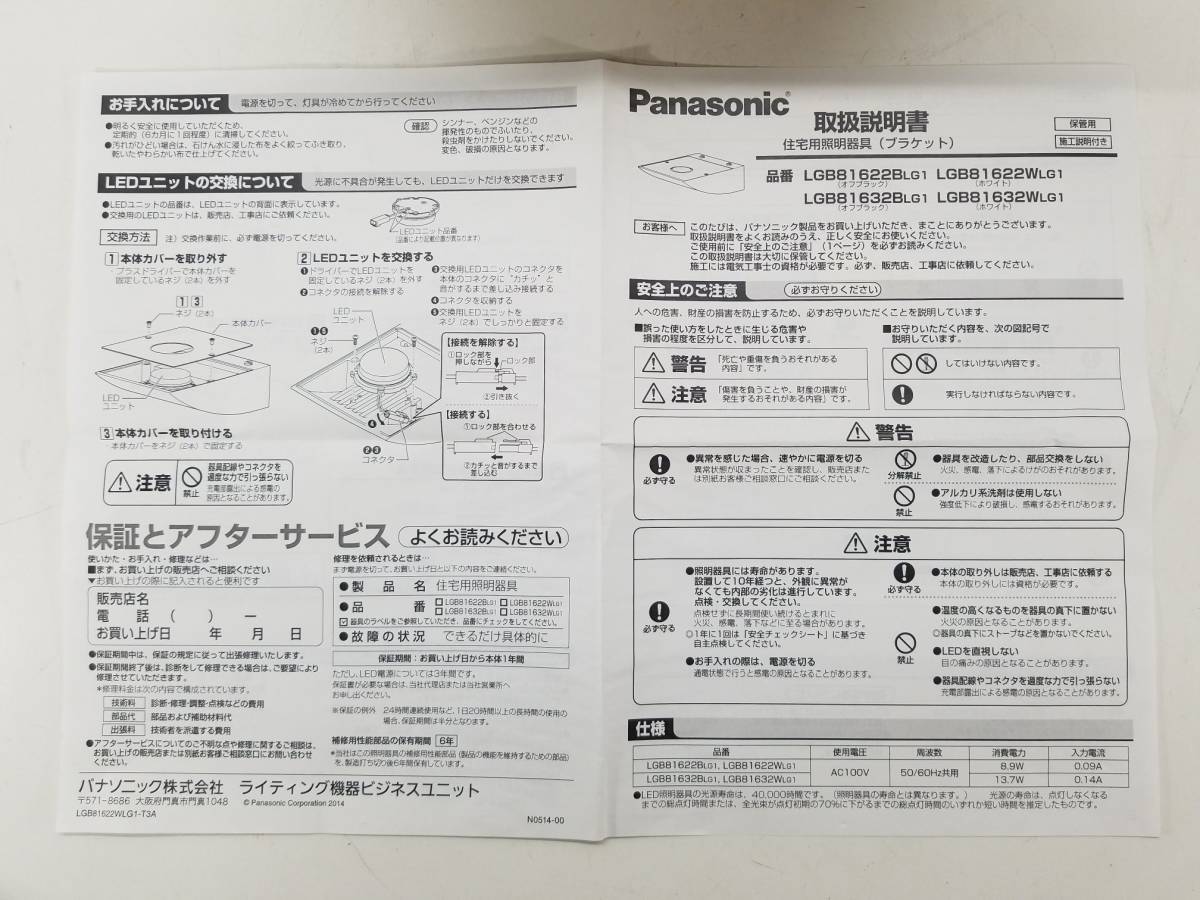 お手入れについて 電源を切って、灯具が冷めてから行ってください
●明るく安全に使用していただくため、
定期的（6カ月に1回程度）に清掃してください。
●汚れがひどい場合は、石けん水に浸した布をよく絞ってふき取り、
乾いたやわらかい布で仕上げてください。
確認 シンナー、ベンジンなどの
揮発性のものでふいたり、
殺虫剤をかけたりしないでください。
変色、破損の原因となります。
LEDユニットの交換について 光源に不具合が発生しても、LEDユニットだけを交換できます
●LEDユニットの品番は、LEDユニットの背面に表示しています。
●交換用のLEDユニットは、販売店、工事店にご依頼ください。
LEDユニット品番
(品番により記載位置が異なります)
交換方法 注）交換作業前に、必ず電源を切ってください。
1 本体カバーを取り外す
プラスドライバーで本体カバーを
固定しているネジ（2本）を外す
1 3
ネジ（2本）
本体カバー
LED
ユニット
3 本体カバーを取り付ける
本体カバーをネジ（2本）で固定する
注意
禁止
器具配線やコネクタを
過度な力で引っ張らない
充電部露出による感電の
原因となることがあります。
2 LEDユニットを交換する
❶ドライバーでLEDユニットを
固定しているネジ（2本）を外す
❷コネクタの接続を解除する
❸交換用LEDユニットのコネクタを
本体のコネクタに“カチッ”と
音がするまで差し込み接続する
❹コネクタを収納する
❺交換用LEDユニットを
ネジ（2本）でしっかりと固定する
LED
ユニット
❶❺
ネジ
（2本）
❹
❷❸
コネクター
【接続を解除する】
①ロック部を
押しながら
ロック部
②引き抜く
【接続する】
①ロック部を合わせる
②カチッと音がするまで
差し込む
保証とアフターサービス よくお読みください
使いかた・お手入れ・修理などは…
■まず、お買い上げの販売店へご相談ください
▼お買い上げの際に記入されると便利です
販売店名
電 話 （ ） ー
お買い上げ日 年 月 日
●保証期間中は、保証の規定に従って出張修理いたします。
●保証期間終了後は、診断をして修理できる場合は、ご要望により
修理させていただきます。
*修理料金は次の内容で構成されています。
技術料 診断・修理・調整・点検などの費用
部品代 部品および補助材料代
出張料 技術者を派遣する費用
●アフターサービスについてのご不明な点や修理に関するご相談は、
お買い上げの販売店または別紙お客様ご相談窓口にお問い合わせ
ください。
修理を依頼されるときは…
まず電源を切って、お買い上げ日と以下の内容をご連絡ください。
●製 品 名 住宅用照明器具
●品 番 □LGB81622BLG1 □LGB81622WLG1
□LGB81632BLG1 □LGB81632WLG1
☑器具のラベルをご参照していただき、品番にチェックをしてください。
●故障の状況 できるだけ具体的に
保証期間：お買い上げ日から本体1年間
ただし、LED電源については3年間です。
保証書が必要な場合は、当社代理店または当社営業所へ
お申し出ください。
※保証の例外 24時間連続使用など、1日20時間以上の長時間の使用の
場合、保証期間は半分となります。
補修用性能部品の保有期間 6年
*当社はこの照明器具の補修用性能部品（製品の機能を維持するための部品）
を、製造打ち切り後6年間保有しています。
パナソニック株式会社 ライティング機器ビジネスユニット
〒571-8686 大阪府門真市門真1048 © Panasonic Corporation 2014
LGB81622WLG1-T3A
N0514-00
Panasonic®
取扱説明書
住宅用照明器具（ブラケット）
保管用
施工説明付き
品番 LGB81622BLG1 LGB81622WLG1
（オフブラック） （ホワイト）
LGB81632BLG1 LGB81632WLG1
（オフブラック） （ホワイト）
お客様へ このたびは、パナソニック製品をお買い上げいただき、まことにありがとうございます。
取扱説明書をよくお読みのうえ、正しく安全にお使いください。
ご使用前に「安全上のご注意」（1ページ）を必ずお読みください。
この取扱説明書は大切に保管してください。
施工には電気工事士の資格が必要です。必ず、販売店、工事店に依頼してください。
安全上のご注意 必ずお守りください
人への危害、財産の損害を防止するため、必ずお守りいただくことを説明しています。
■誤った使い方をしたときに生じる危害や
損害の程度を区分して、説明しています。
警告 「死亡や重傷を負うおそれがある
内容」です。
注意 「傷害を負うことや、財産の損害が
発生するおそれがある内容」です。
■お守りいただく内容を、次の図記号で
説明しています。
してはいけない内容です。
実行しなければならない内容です。
警告
必ず守る
●異常を感じた場合、速やかに電源を切る
異常状態が収まったことを確認し、販売店また
は別紙お客様ご相談窓口にご相談ください。
分解禁止
●器具を改造したり、部品交換をしない
火災、感電、落下によるけがのおそれがあります。
禁止
●アルカリ系洗剤は使用しない
強度低下により破損し、感電するおそれがあります。
注意
必ず守る
●照明器具には寿命があります。
設置して10年経つと、外観に異常が
なくても内部の劣化は進行しています。
点検・交換してください。
点検せずに長期間使い続けるとまれに
火災、感電、落下などに至る場合があります。
◎1年に1回は「安全チェックシート」に基づき
自主点検してください。
●お手入れの際は、電源を切る
通電状態で行うと感電の原因となることがあります。
必ず守る
●本体の取り外しは販売店、工事店に依頼する
本体の取り外しには資格が必要です。
禁止
●温度の高くなるものを器具の真下に置かない
火災の原因となることがあります。
◎器具の真下にストーブなどを置かないでください。
●LEDを直視しない
目の痛みの原因となることがあります。
●器具配線やコネクタを過度な力で引っ張らない
充電部露出による感電の原因となることがあります。
仕様
品番 使用電圧 周波数 消費電力 入力電流
LGB81622BLG1, LGB81622WLG1 AC100V 50/60Hz共用 8.9W 0.09A
LGB81632BLG1, LGB81632WLG1 13.7W 0.14A
●LED照明器具の光源寿命は、40,000時間です。（照明器具の寿命とは異なります。） 光源の寿命は、点灯しなくなる
までの総点灯時間または、全光束が点灯初期の70％に下がるまでの総点灯時間のいずれか短い時間を推定したものです。